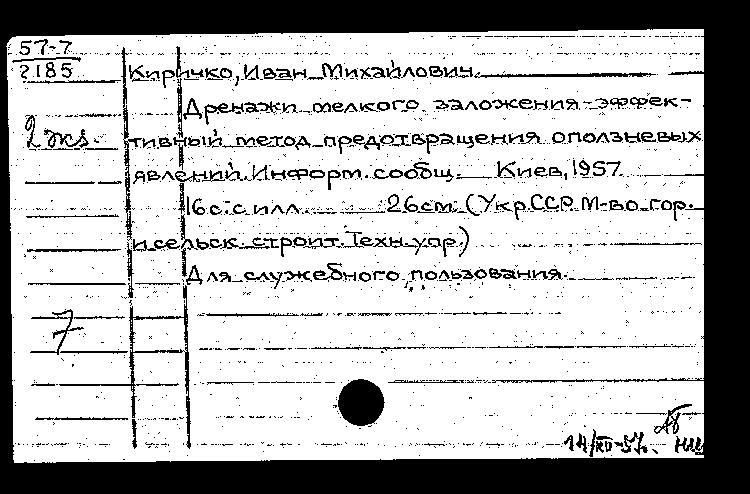 57-7
2185
Киричко, Иван Михайлович.
Дренажи мелкого заложения-эффек-
2 экз.
тивный метод предотвращения оползневых
явлений. Информ. сообщ. Киев, 1957
16 с. с илл. 26 см. (Укр.ССР. М-во гор.
и сельск. строит. Техн. упр.)
Для служебного пользования.
7
14/XII-57г.